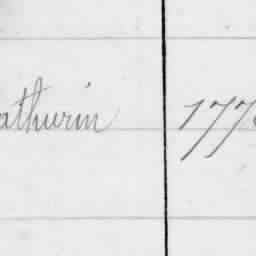 athurin 177